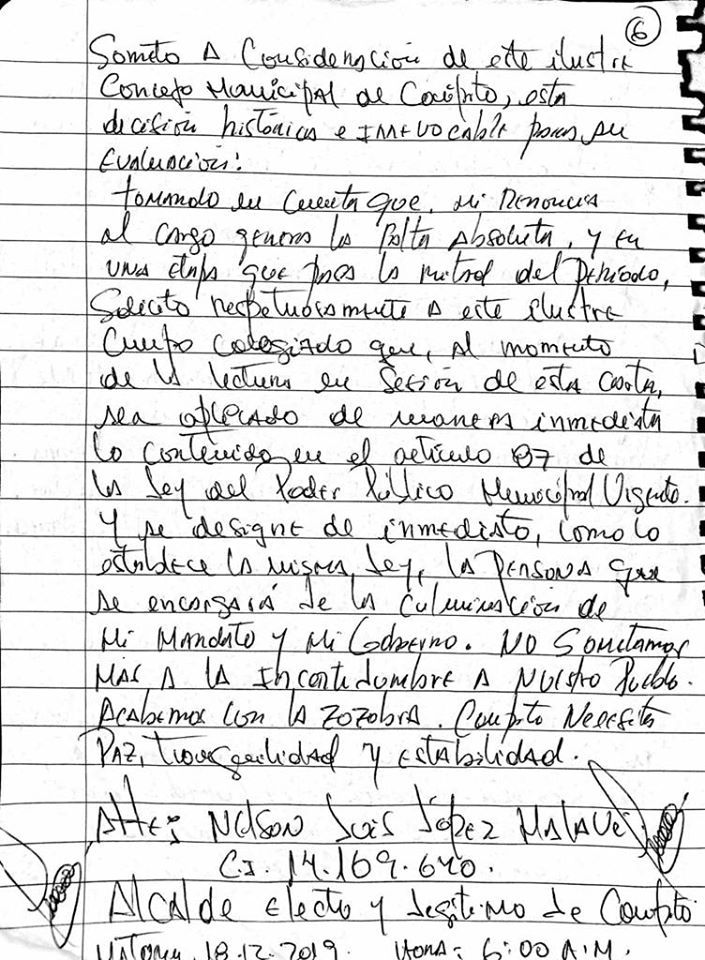 6
Someto A Consideración de este ilustre
Concejo Municipal de Caripito, esta
decisión histórica e IRREVOCABLE para su
Evaluación:
tomando en Cuenta que, mi Renuncia
al cargo genera la Falta Absoluta, y en
una etapa que pasa la mitad del Período,
Solicito respetuosamente a este ilustre
Cuerpo Colegiado que, al momento
de la lectura en Sesión de esta Carta,
sea aplicado de manera inmediata
lo contenido en el artículo 87 de
la Ley del Poder Público Municipal Vigente.
Y se designe de inmediato, como lo
establece la misma Ley, la PERSONA que
se encargará de la Culminación de
Mi Mandato y Mi Gobierno. NO Sometamos
MAS A LA Incertidumbre A Nuestro Pueblo.
Acabemos con la zozobra. Caripito Necesita
PAZ, tranquilidad y EstAbilidad.
Atte: Nelson Luis López Malavé
C.I. 14.169.640.
Alcalde Electo y Legitimo de Caripito
Maturín, 18.12.2019. Hora: 6:00 A.M.